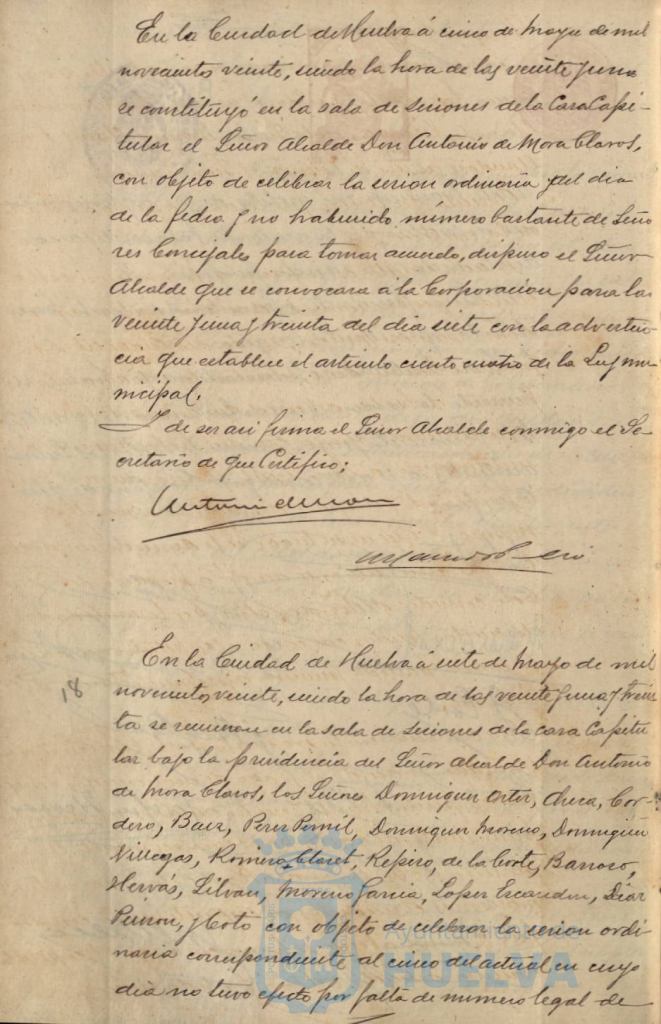 En la Ciudad de Huelva á cinco de Mayo de mil
novecientos veinte, siendo la hora de las veinte y una
se constituyó en la sala de sesiones de la Casa Capi-
tular el Señor Alcalde Don Antonio de Mora Claros,
con objeto de celebrar la sesion ordinaria del dia
de la fecha y no habiendo número bastante de Seño
res Concejales para tomar acuerdo, dispuso el Señor
Alcalde que se convocara á la Corporacion para las
veinte y una y treinta del dia siete con la adverten-
cia que establece el articulo ciento cuatro de la Ley mu-
nicipal.
Y de ser asi firma el Señor Alcalde conmigo el Se-
cretario de que Certifico;
Antonio de Mora
18
En la Ciudad de Huelva á siete de Mayo de mil
novecientos veinte, siendo la hora de las veinte y una y trein
ta se reunieron en la sala de sesiones de la casa Capitu
lar bajo la presidencia del Señor Alcalde Don Antonio
de Mora Claros, los Señores Dominguez Ortiz, Checa, Cor-
dero, Baez, Perez Pomil, Dominguez Moreno, Dominguez
Villegas, Romero Claret, Repiso, de la Corte, Barroso,
Hervás, Silvan, Moreno Garcia, Lopez Escandon, Diaz
y Coto con objeto de celebrar la sesion ordi
naria correspondiente al cinco del actual en cuyo
dia no tuvo efecto por falta de numero legal de
Ayuntamiento de
HUELVA